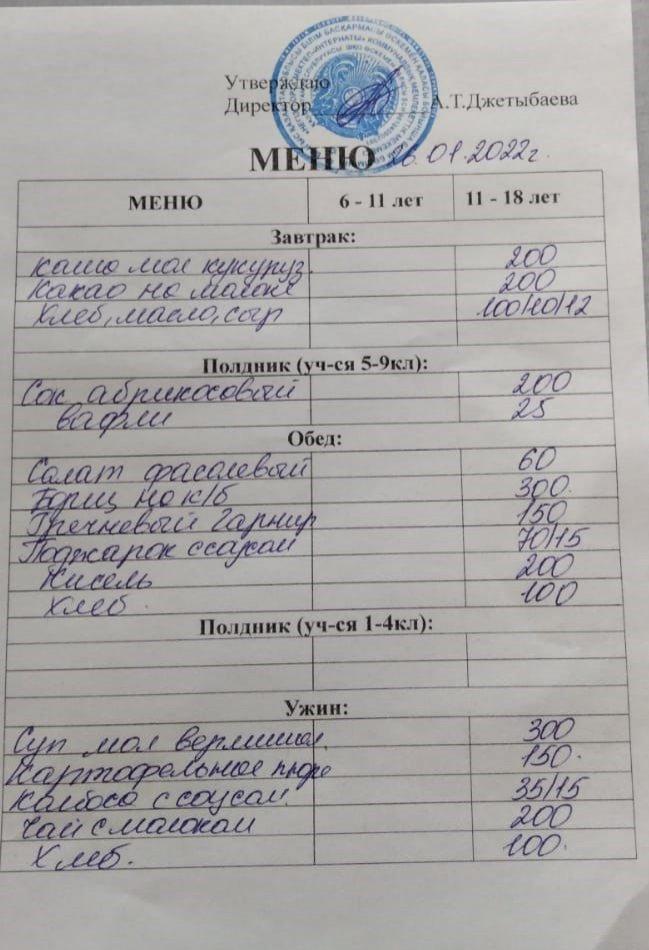 Утверждаю
Директор А.Т.Джетыбаева
МЕНЮ 26.01.2022г.
МЕНЮ 6 - 11 лет 11 - 18 лет
Завтрак:
каша мол кукуруз. 200
Какао на молоке 200
Хлеб, масло, сыр 100/10/12
Полдник (уч-ся 5-9кл):
Сок абрикосовый 200
вафли 25
Обед:
Салат фасолевый 60
Борщ на к/б 300.
Гречневый гарнир 150
Поджарок с соусом 70/15
Кисель 200
Хлеб. 100
Полдник (уч-ся 1-4кл):
Ужин:
Суп мол вермишел. 300
Картофельное пюре 150.
Колбаса с соусом. 35/15
Чай с молоком 200
Хлеб. 100.